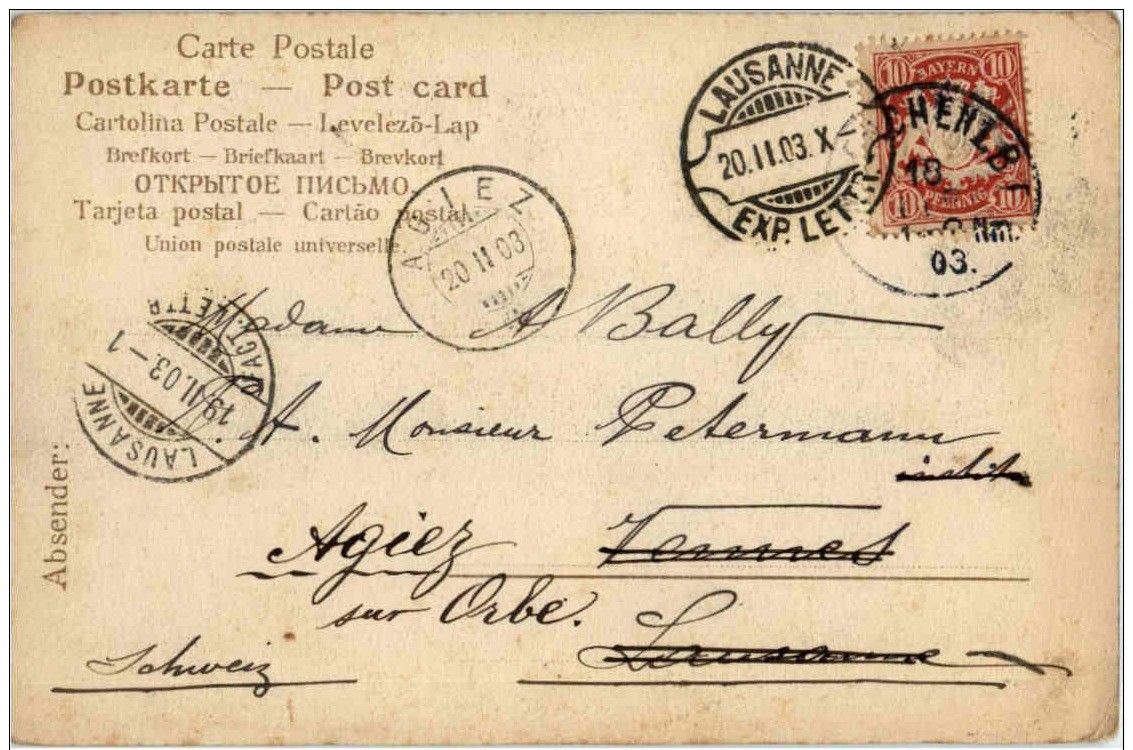 Carte Postale
Postkarte — Post card
Cartolina Postale — Levelezõ-Lap
Brefkort — Briefkaart — Brevkort
ОТКРЫТОЕ ПИСЬМО.
Tarjeta postal — Cartão postal.
Union postale universelle.
LAUSANNE
20.II.03.X
EXP. LETTR.
10 BAYERN 10
10 PFENNIG 10
18.
03.
AGIEZ
20 II 03
LAUSANNE
19.II.03.–1
Madame A Bally
A. Monsieur Petermann
instit
Agiez Vennes
sur Orbe.
Lausanne
Schweiz
Absender: